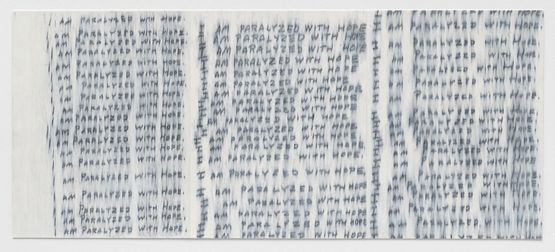 I AM PARALYZED WITH HOPE.
I AM PARALYZED WITH HOPE.
I AM PARALYZED WITH HOPE.
I AM PARALYZED WITH HOPE.
I AM PARALYZED WITH HOPE.
I AM PARALYZED WITH HOPE.
I AM PARALYZED WITH HOPE.
I AM PARALYZED WITH HOPE.
I AM PARALYZED WITH HOPE.
I AM PARALYZED WITH HOPE.
I AM PARALYZED WITH HOPE.
I AM PARALYZED WITH HOPE.
I AM PARALYZED WITH HOPE.
I AM PARALYZED WITH HOPE.
I AM PARALYZED WITH HOPE.
I AM PARALYZED WITH HOPE.
I AM PARALYZED WITH HOPE.
I AM PARALYZED WITH HOPE.
I AM PARALYZED WITH HOPE.
I AM PARALYZED WITH HOPE.
I AM PARALYZED WITH HOPE.
I AM PARALYZED WITH HOPE.
I AM PARALYZED WITH HOPE.
I AM PARALYZED WITH HOPE.
I AM PARALYZED WITH HOPE.
I AM PARALYZED WITH HOPE.
I AM PARALYZED WITH HOPE.
I AM PARALYZED WITH HOPE.
I AM PARALYZED WITH HOPE.
I AM PARALYZED WITH HOPE.
I AM PARALYZED WITH HOPE.
I AM PARALYZED WITH HOPE.
I AM PARALYZED WITH HOPE.
I AM PARALYZED WITH HOPE.
I AM PARALYZED WITH HOPE.
I AM PARALYZED WITH HOPE.
I AM PARALYZED WITH HOPE.
I AM PARALYZED WITH HOPE.
I AM PARALYZED WITH HOPE.
I AM PARALYZED WITH HOPE.
I AM PARALYZED WITH HOPE.
I AM PARALYZED WITH HOPE.
I AM PARALYZED WITH HOPE.
I AM PARALYZED WITH HOPE.
I AM PARALYZED WITH HOPE.
I AM PARALYZED WITH HOPE.
I AM PARALYZED WITH HOPE.
I AM PARALYZED WITH HOPE.
I AM PARALYZED WITH HOPE.
I AM PARALYZED WITH HOPE.
I AM PARALYZED WITH HOPE.
I AM PARALYZED WITH HOPE.
I AM PARALYZED WITH HOPE.
I AM PARALYZED WITH HOPE.
I AM PARALYZED WITH HOPE.
I AM PARALYZED WITH HOPE.
I AM PARALYZED WITH HOPE.
I AM PARALYZED WITH HOPE.
I AM PARALYZED WITH HOPE.